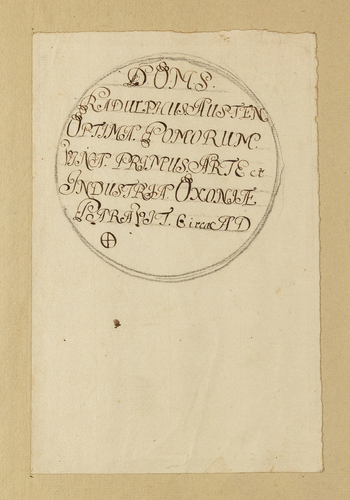 DOMS.
RADULPHUS AUSTEN
OPTIMA POMORUM
VINA PRIMUS ARTE et
INDUSTRIA OXONIÆ
PARAVIT. Circa AD